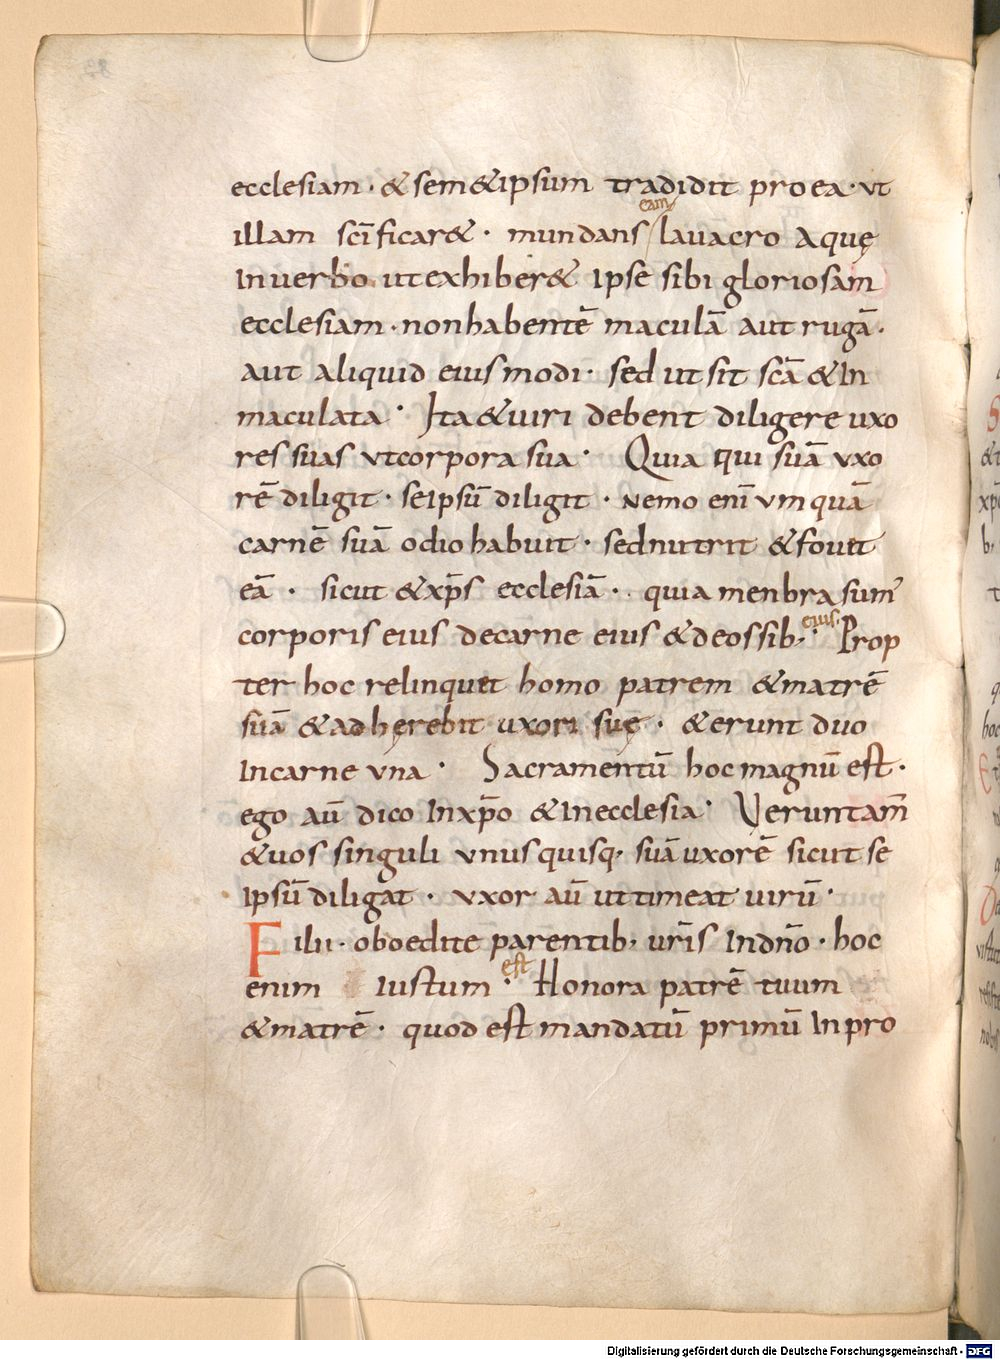 ecclesiam · & sem&ipsum tradidit pro ea · ut
illam scīficar& · mundans eam lauacro aquę
In uerbo ut exhiber& Ipse sibi gloriosam
ecclesiam · non habentē maculā aut rugā ·
aut aliquid eius modi · sed ut sit scā & In
maculata · Ita & uiri debent diligere uxo
res suas ut corpora sua · Quia qui suā uxo
rē diligit · seIpsū diligit · Nemo enī umquā
carnē suā odio habuit · sed nutrit & fouet
eā · sicut & xp̄s ecclesiā · quia menbra sum̄
corporis eius de carne eius & de ossib; eius · Prop
ter hoc relinquet homo patrem & matrē
suā & adherebit uxori suę · & erunt duo
In carne una · Sacramentū hoc magnū est ·
ego aū dico In xp̄o & In ecclesia · Veruntam̄
& uos singuli unusquisq; suā uxorē sicut se
Ipsū diligat · uxor aū ut timeat uirū ·
Filii · oboedite parentib; ur̄is In dn̄o · hoc
enim iustum est · Honora patrē tuum
& matrē · quod est mandatū primū In pro
Digitalisierung gefördert durch die Deutsche Forschungsgemeinschaft - DFG